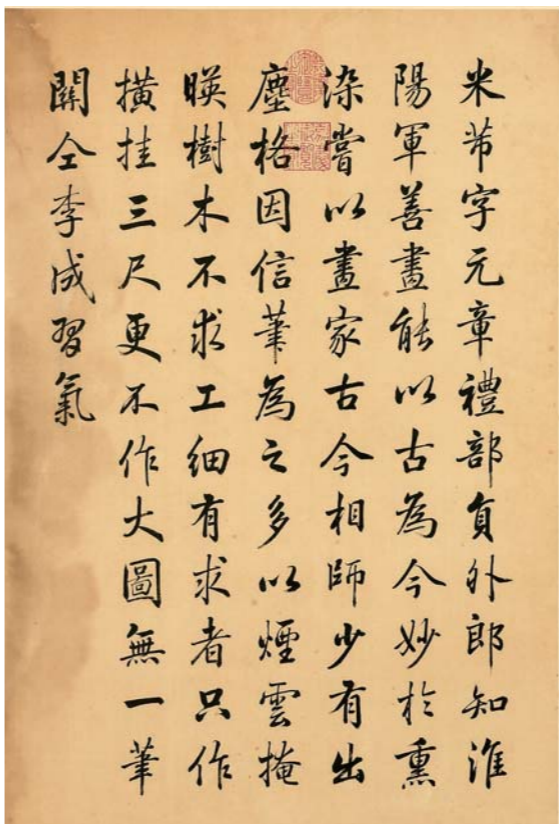 米芾字元章禮部負外郎知淮
陽軍善畫能以古為今妙於熏
染嘗以畫家古今相師少有出
塵格因信筆為之多以煙雲掩
暎樹木不求工細有求者只作
橫挂三尺更不作大圖無一筆
關仝李成習氣